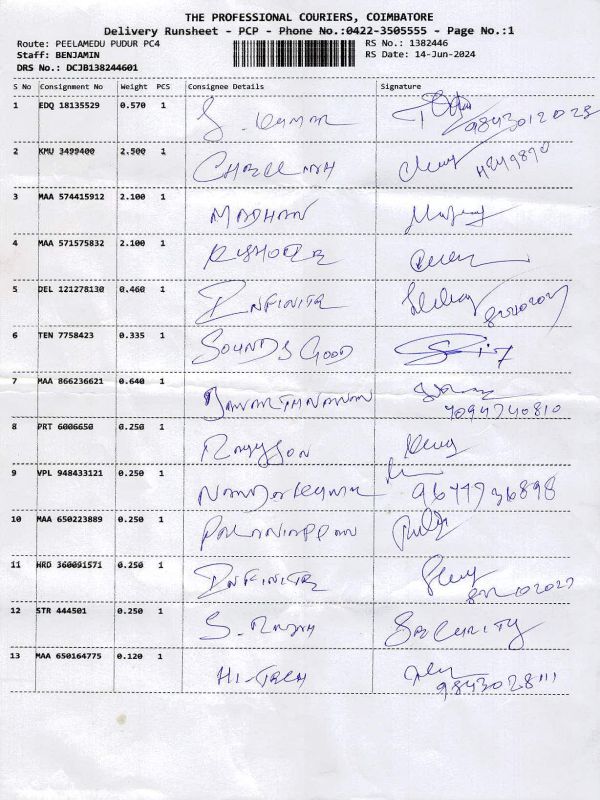 THE PROFESSIONAL COURIERS, COIMBATORE
Delivery Runsheet - PCP - Phone No.:0422-3505555 - Page No.:1
Route: PEELAMEDU PUDUR PC4 RS No.: 1382446
Staff: BENJAMIN RS Date: 14-Jun-2024
DRS No.: DCJB138244601
S No Consignment No Weight PCS Consignee Details Signature
1 EDQ 18135529 0.570 1 S. Kumar
2 KMU 3499400 2.500 1
3 MAA 574415912 2.100 1 MADHAN
4 MAA 571575832 2.100 1
5 DEL 121278130 0.460 1 INFINITE
6 TEN 7758423 0.335 1 SOUNDS GOOD
7 MAA 866236621 0.640 1
8 PRT 6006650 0.250 1
9 VPL 948433121 0.250 1 Nandakumar
10 MAA 650223889 0.250 1 PALANIAPPAN
11 HRD 360091571 0.250 1 INFINITE
12 STR 444501 0.250 1 SECURITY
13 MAA 650164775 0.120 1 HI-TECH